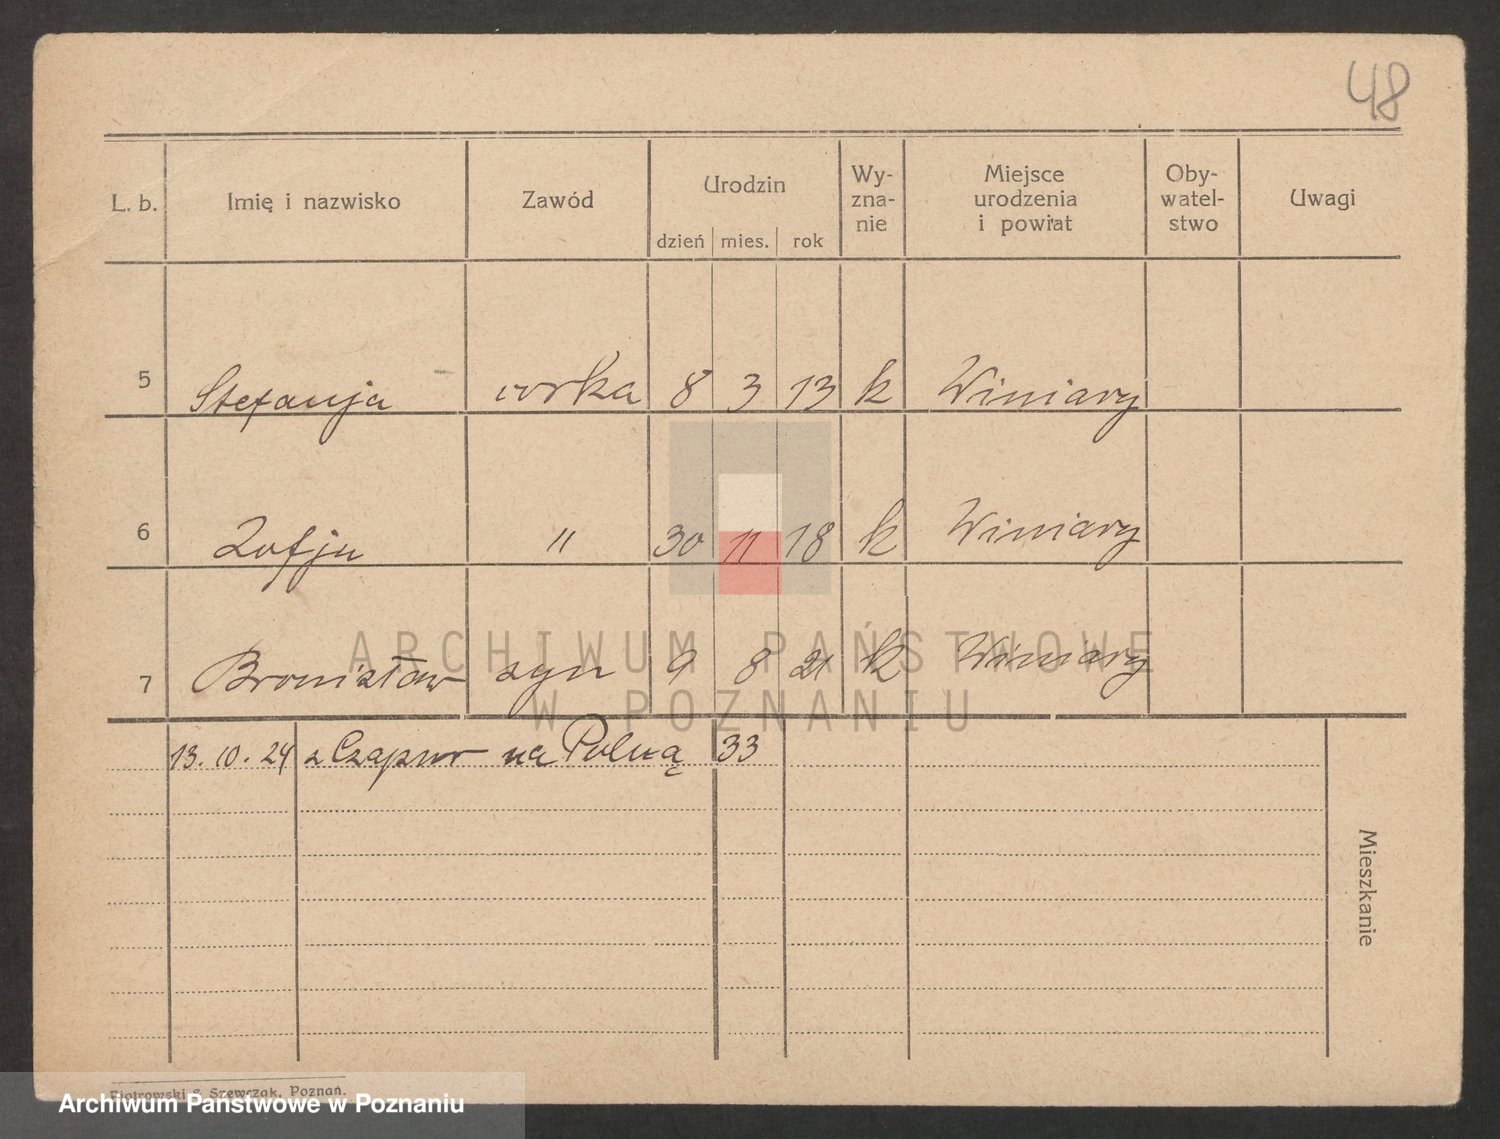 48
L. b. Imię i nazwisko Zawód Urodzin dzień mies. rok Wy-zna-nie Miejsce urodzenia i powiat Oby-watel-stwo Uwagi
5 Stefanja córka 8 3 13 k Winiary
6 Zofja " 30 11 18 k Winiary
7 Bronisław syn 9 8 21 k Winiary
13.10.24 z Czapur na Polną 33
Mieszkanie
Piotrowski & Szewczak, Poznań.
ARCHIWUM PAŃSTWOWE
W POZNANIU
Archiwum Państwowe w Poznaniu